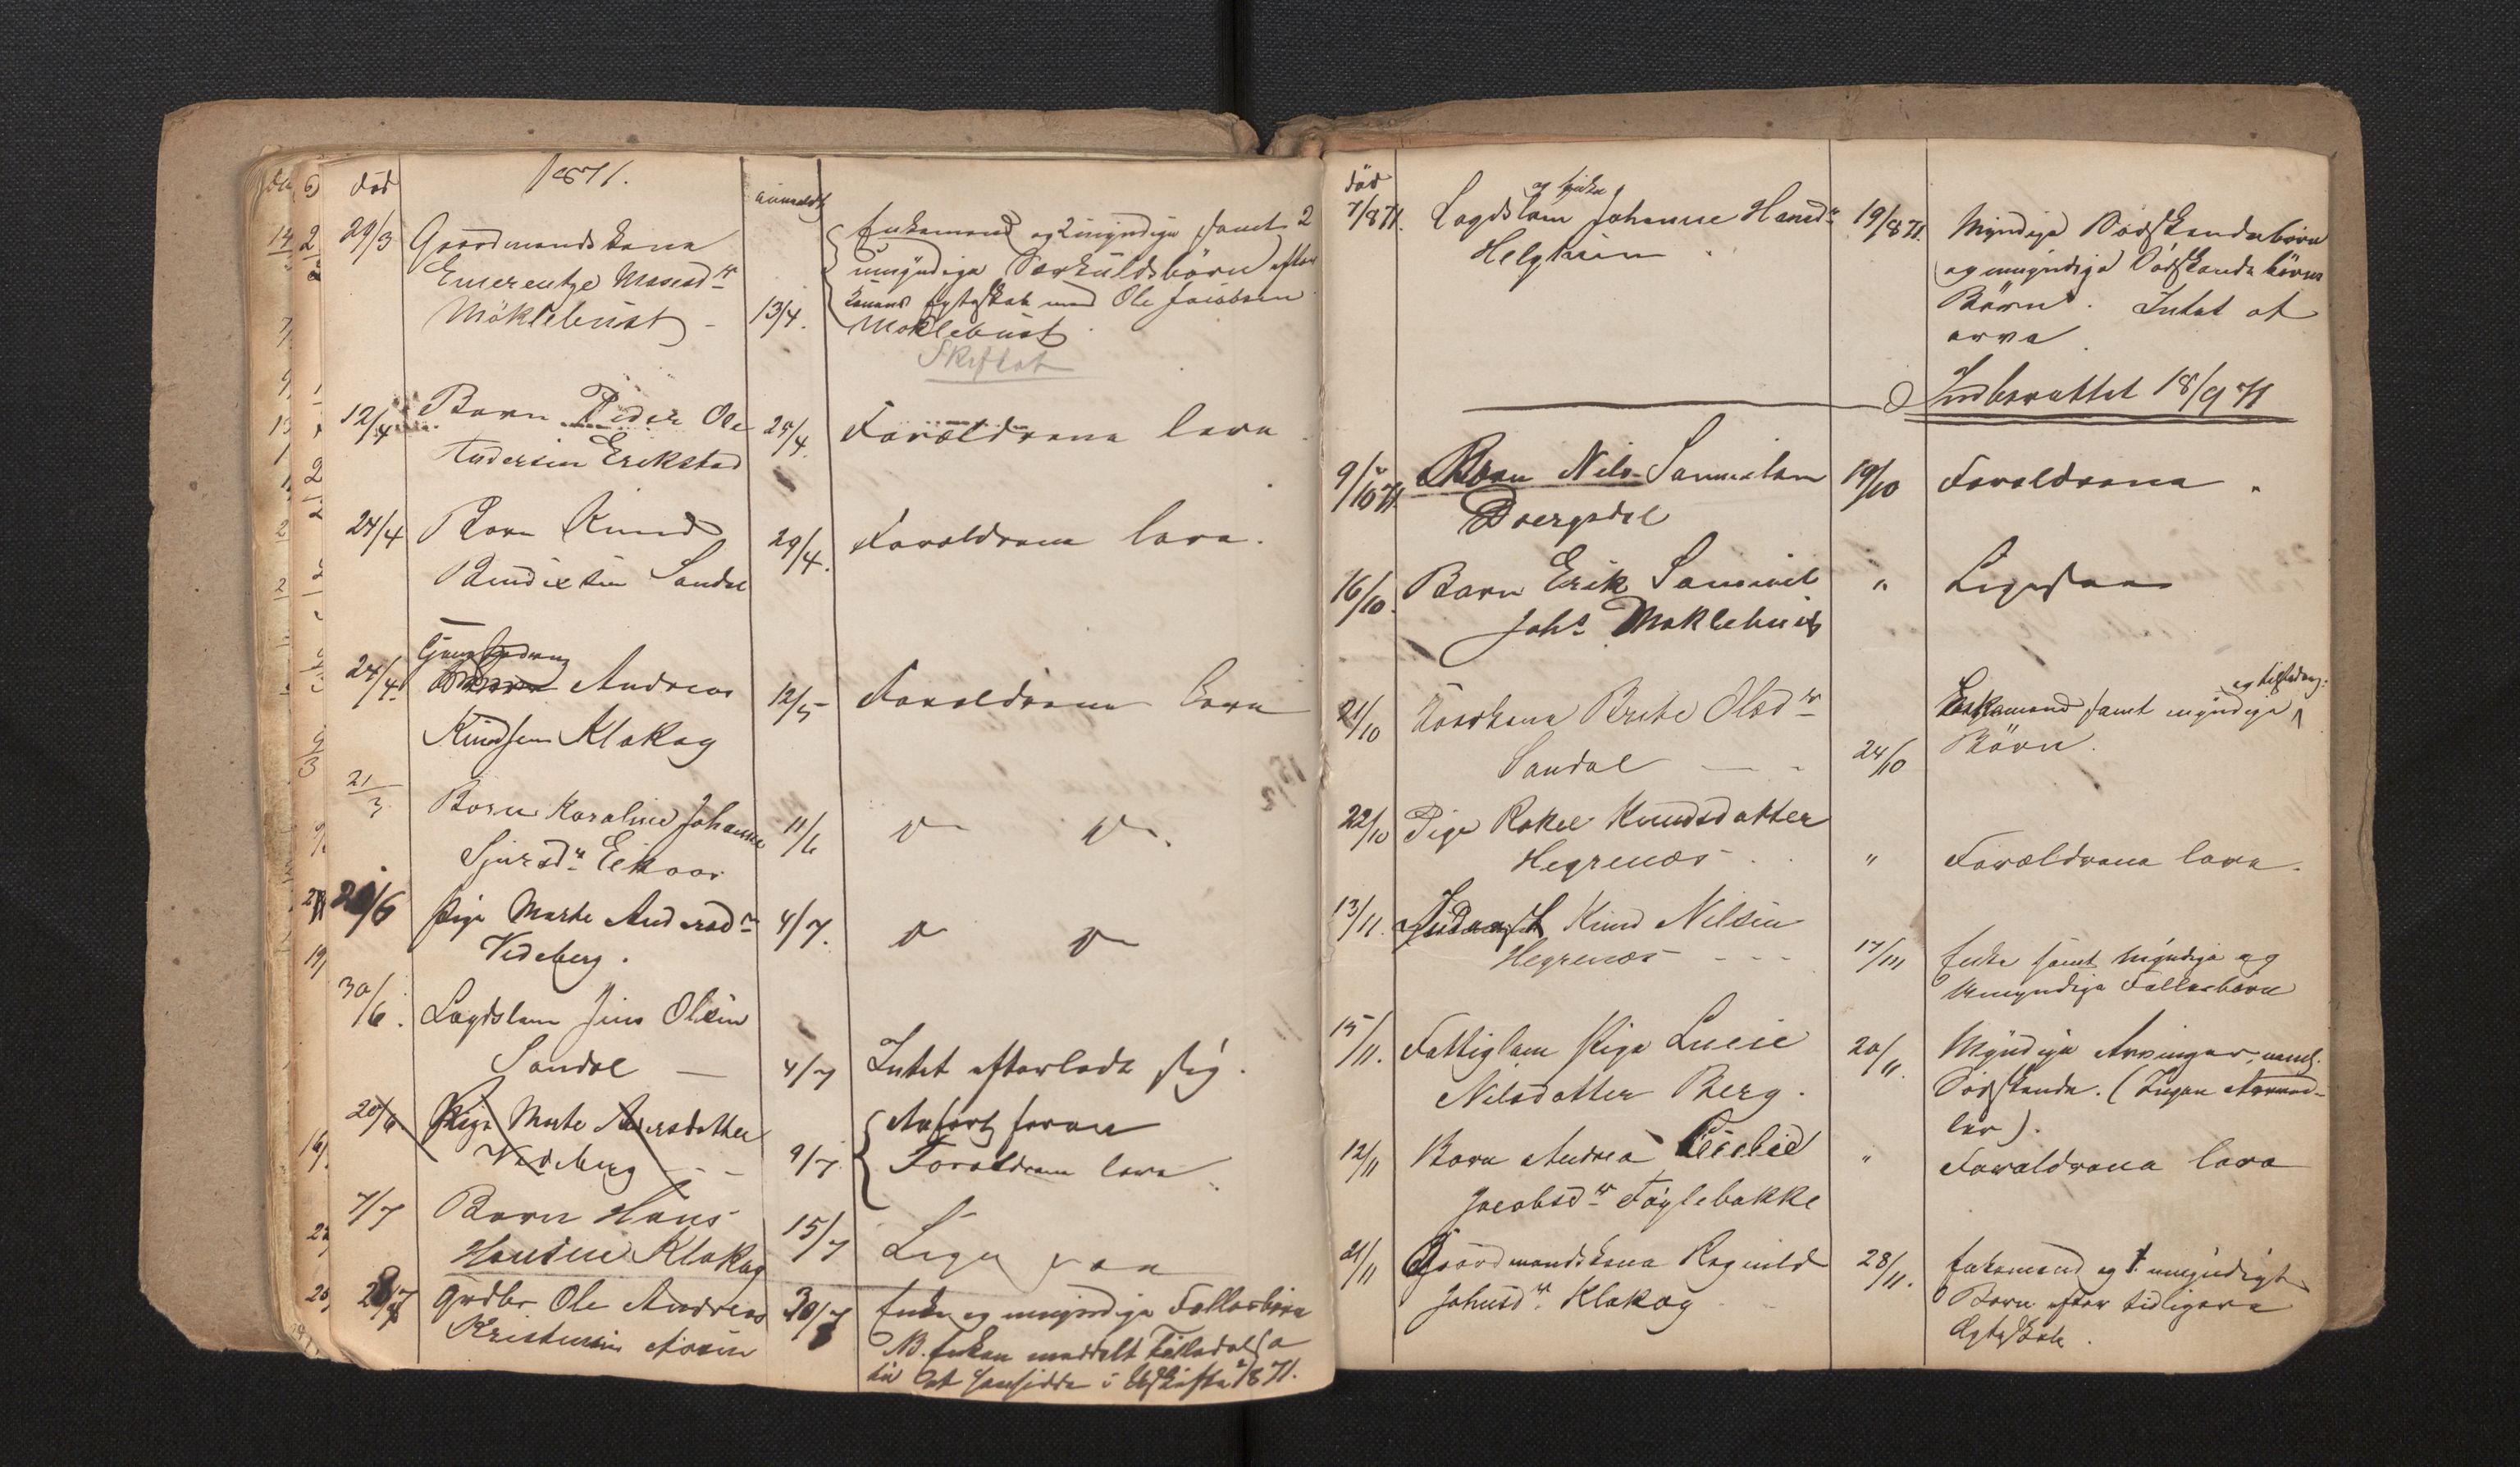 död
1871.
anmeldt
29/3
Gaardmandskone
Emerentze Mosesdr
Möklebust -
13/4.
Enkemand og 2 myndige samt 2
umyndige Særkuldsbörn efter
konens Egteskab med Ole Jacobsen
Moklebust
Skiftet
12/4
Barn Peder Ole
Andersen Erikstad
25/4.
Forældrene leve
24/4
Barn Knud
Bendixsen Sandal
29/4.
Forældrene leve.
24/4.
Andreas
Knudsen Klakeg
12/5
Forældrene leve
21/3
Barn Karoline Johanne
Sjursdr Eikaas
11/6
D D.
/6
Pige Marte Andersdr
Vedeberg.
4/7.
D D
30/6.
Lægdslem Jens Olsen
Sandal —
4/7
Intet efterladt sig.
20/6
Pige Marte Andersdatter
Vedeberg - -
9/7.
Anfort foran
Forældrene leve
7/7
Barn Hans
Hansen Klakeg
15/7
Lige saa
28/7
Grdbr Ole Andreas
Kristensen Aasen
30/7
Enke og umyndige Fællesbörn
NB. Enken meddelt Tilladelse
til at hensidde i Uskifte 2/8 71.
död
7/8 71.
og Enke
Lægdslem Johanne Hansdr
Helgheim
19/8 71.
Myndige Sodskendebörn
og umyndige Sodskendebörns
Börn. Intet at
arve
Indberettet 18/9 71
9/10 71.
Barn Nils Samuelsen
Dvergsdal
19/10
Foreldrene "
16/10.
Barn Erik Samuel
Johs Moklebust
"
Ligesaa
21/10
Huuskone Brite Olsdr
Sandal — -
24/10
og tilstedev:
Enkemand samt myndige
Börn.
22/10
Pige Rakel Knudsdatter
Hegrenæs
"
Forældrene leve.
13/11.
Inderst Knud Nilsen
Hegrenæs - - -
17/11
Enke samt myndige og
Umyndige Fællesbörn
15/11.
Fattiglem Pige Lucie
Nilsdatter Berg.
20/11.
Myndige Arvinger, neml.
Södskende. (Ingen Arvemid-
ler).
12/11
Barn Andrea Cecilie
Jacobsdr Föglebakke
"
Forældrene leve
21/11
Gaardmandskone Ragnild
Johnsdr Klakeg
28/11.
Enkemand og 1 umyndigt
Barn efter tidligere
Egteskab.